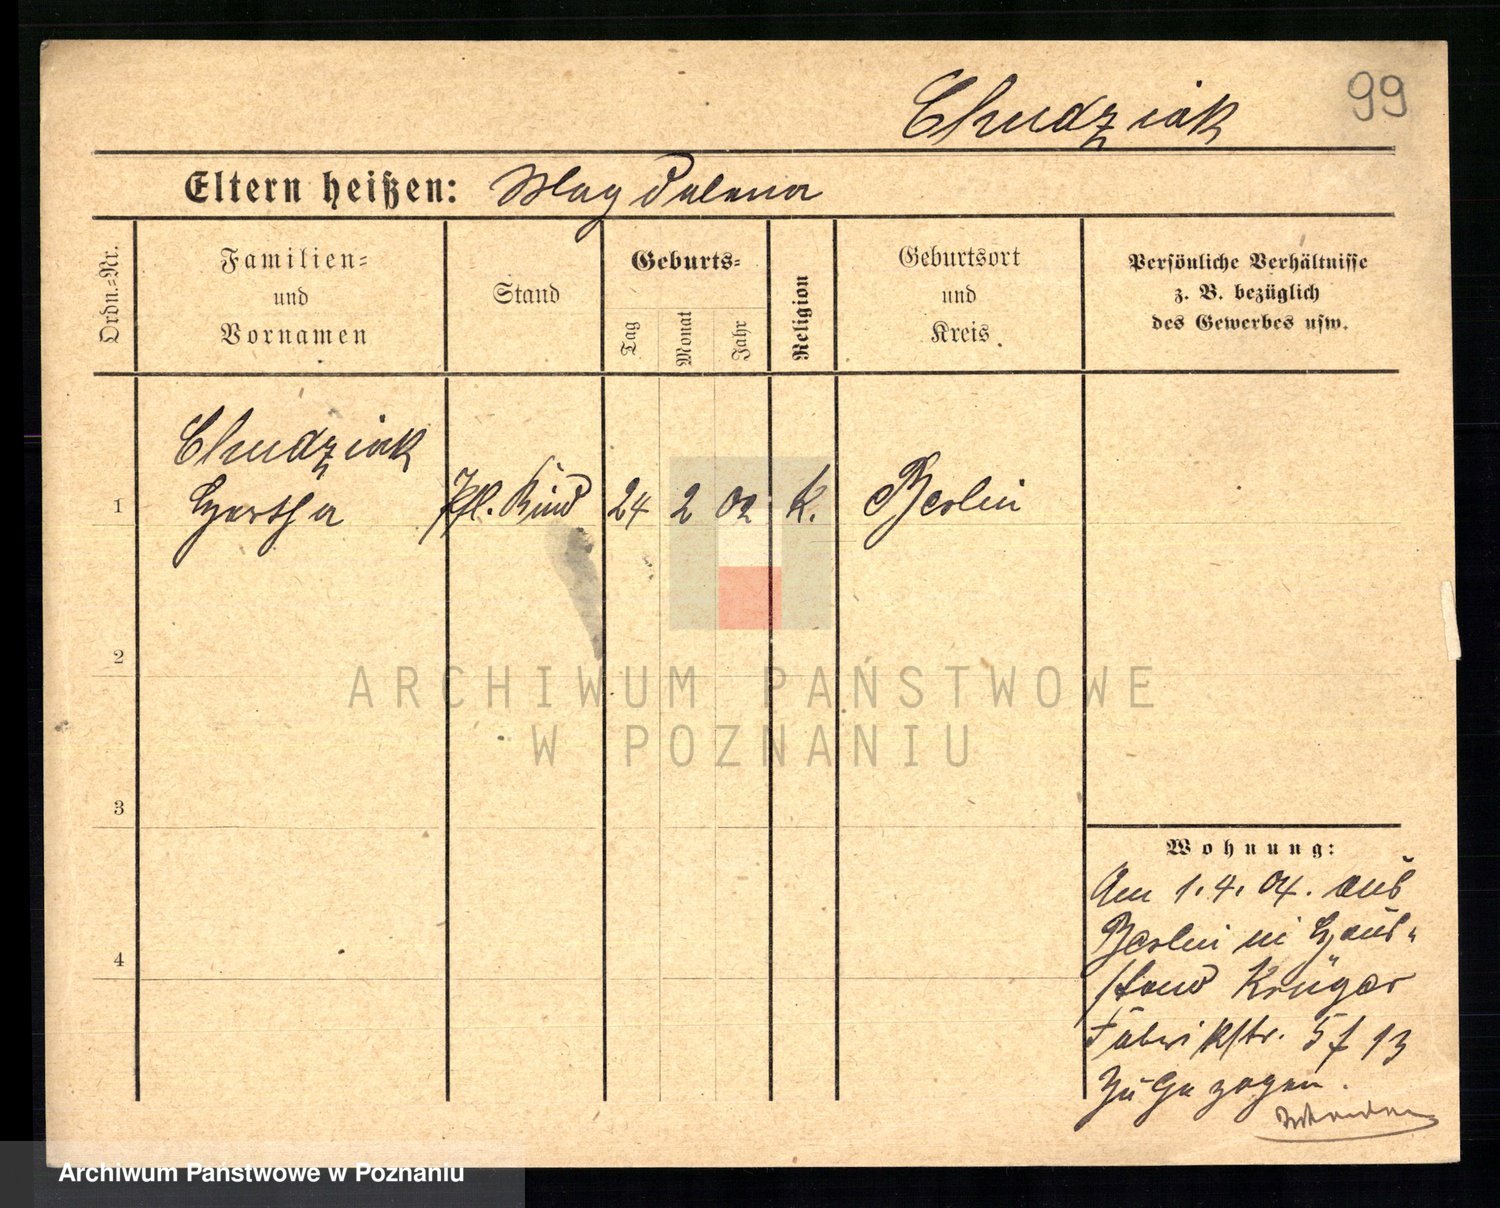 Chudziak 99
Eltern heißen: Magdalena
Ordn.-Nr.
Familien-
und
Vornamen
Stand
Geburts-
Tag
Monat
Jahr
Religion
Geburtsort
und
Kreis.
Persönliche Verhältnisse
z. B. bezüglich
des Gewerbes usw.
Chudziak
1 Hertha Pfl. Kind 24 2 02 K. Berlin
2
3
4
Wohnung:
Am 1.4.04. aus
Berlin in Haus-
stand Krüger
Fabrikstr. 5 f 13
zugezogen.
ARCHIWUM PAŃSTWOWE
W POZNANIU
Archiwum Państwowe w Poznaniu